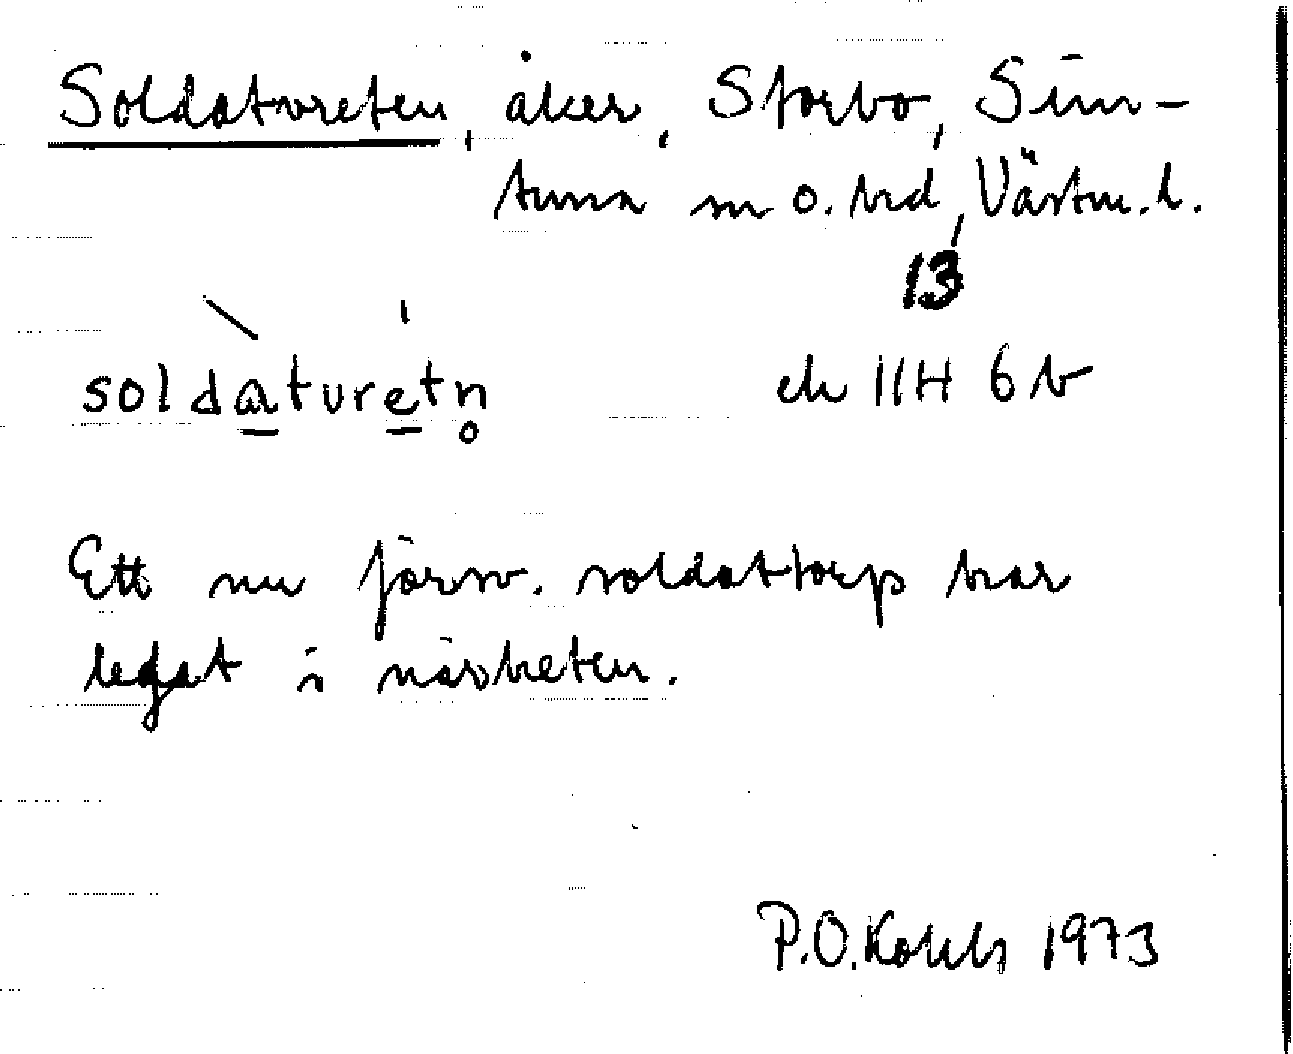 Soldatvreten, åker, Storbo, Sim-
tuna sn o. hd, Västm. l.
13
soldaturetn̥
ek 11H 6b
Ett nu försv. soldattorp har
legat i närheten.
P.O. 1973